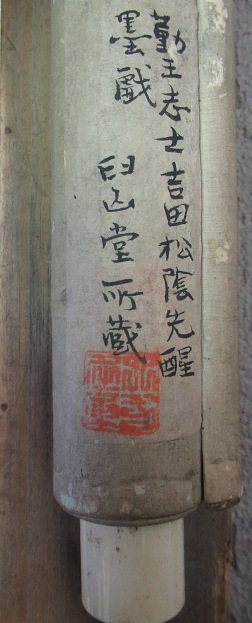 勤王志士吉田松陰先醒
墨戯
臼山堂所蔵